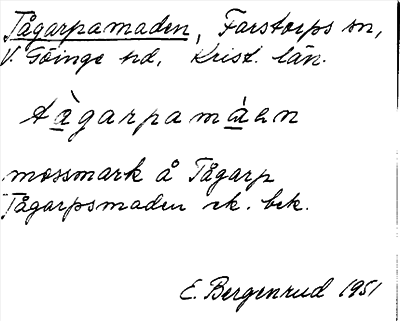 Tågarpamaden, Farstorps sn,
V. Göinge hd, Krist. län.
tàgarpamàen
mossmark å Tågarp
Tågarpsmaden ek. bek.
E. Bergenrud 1951